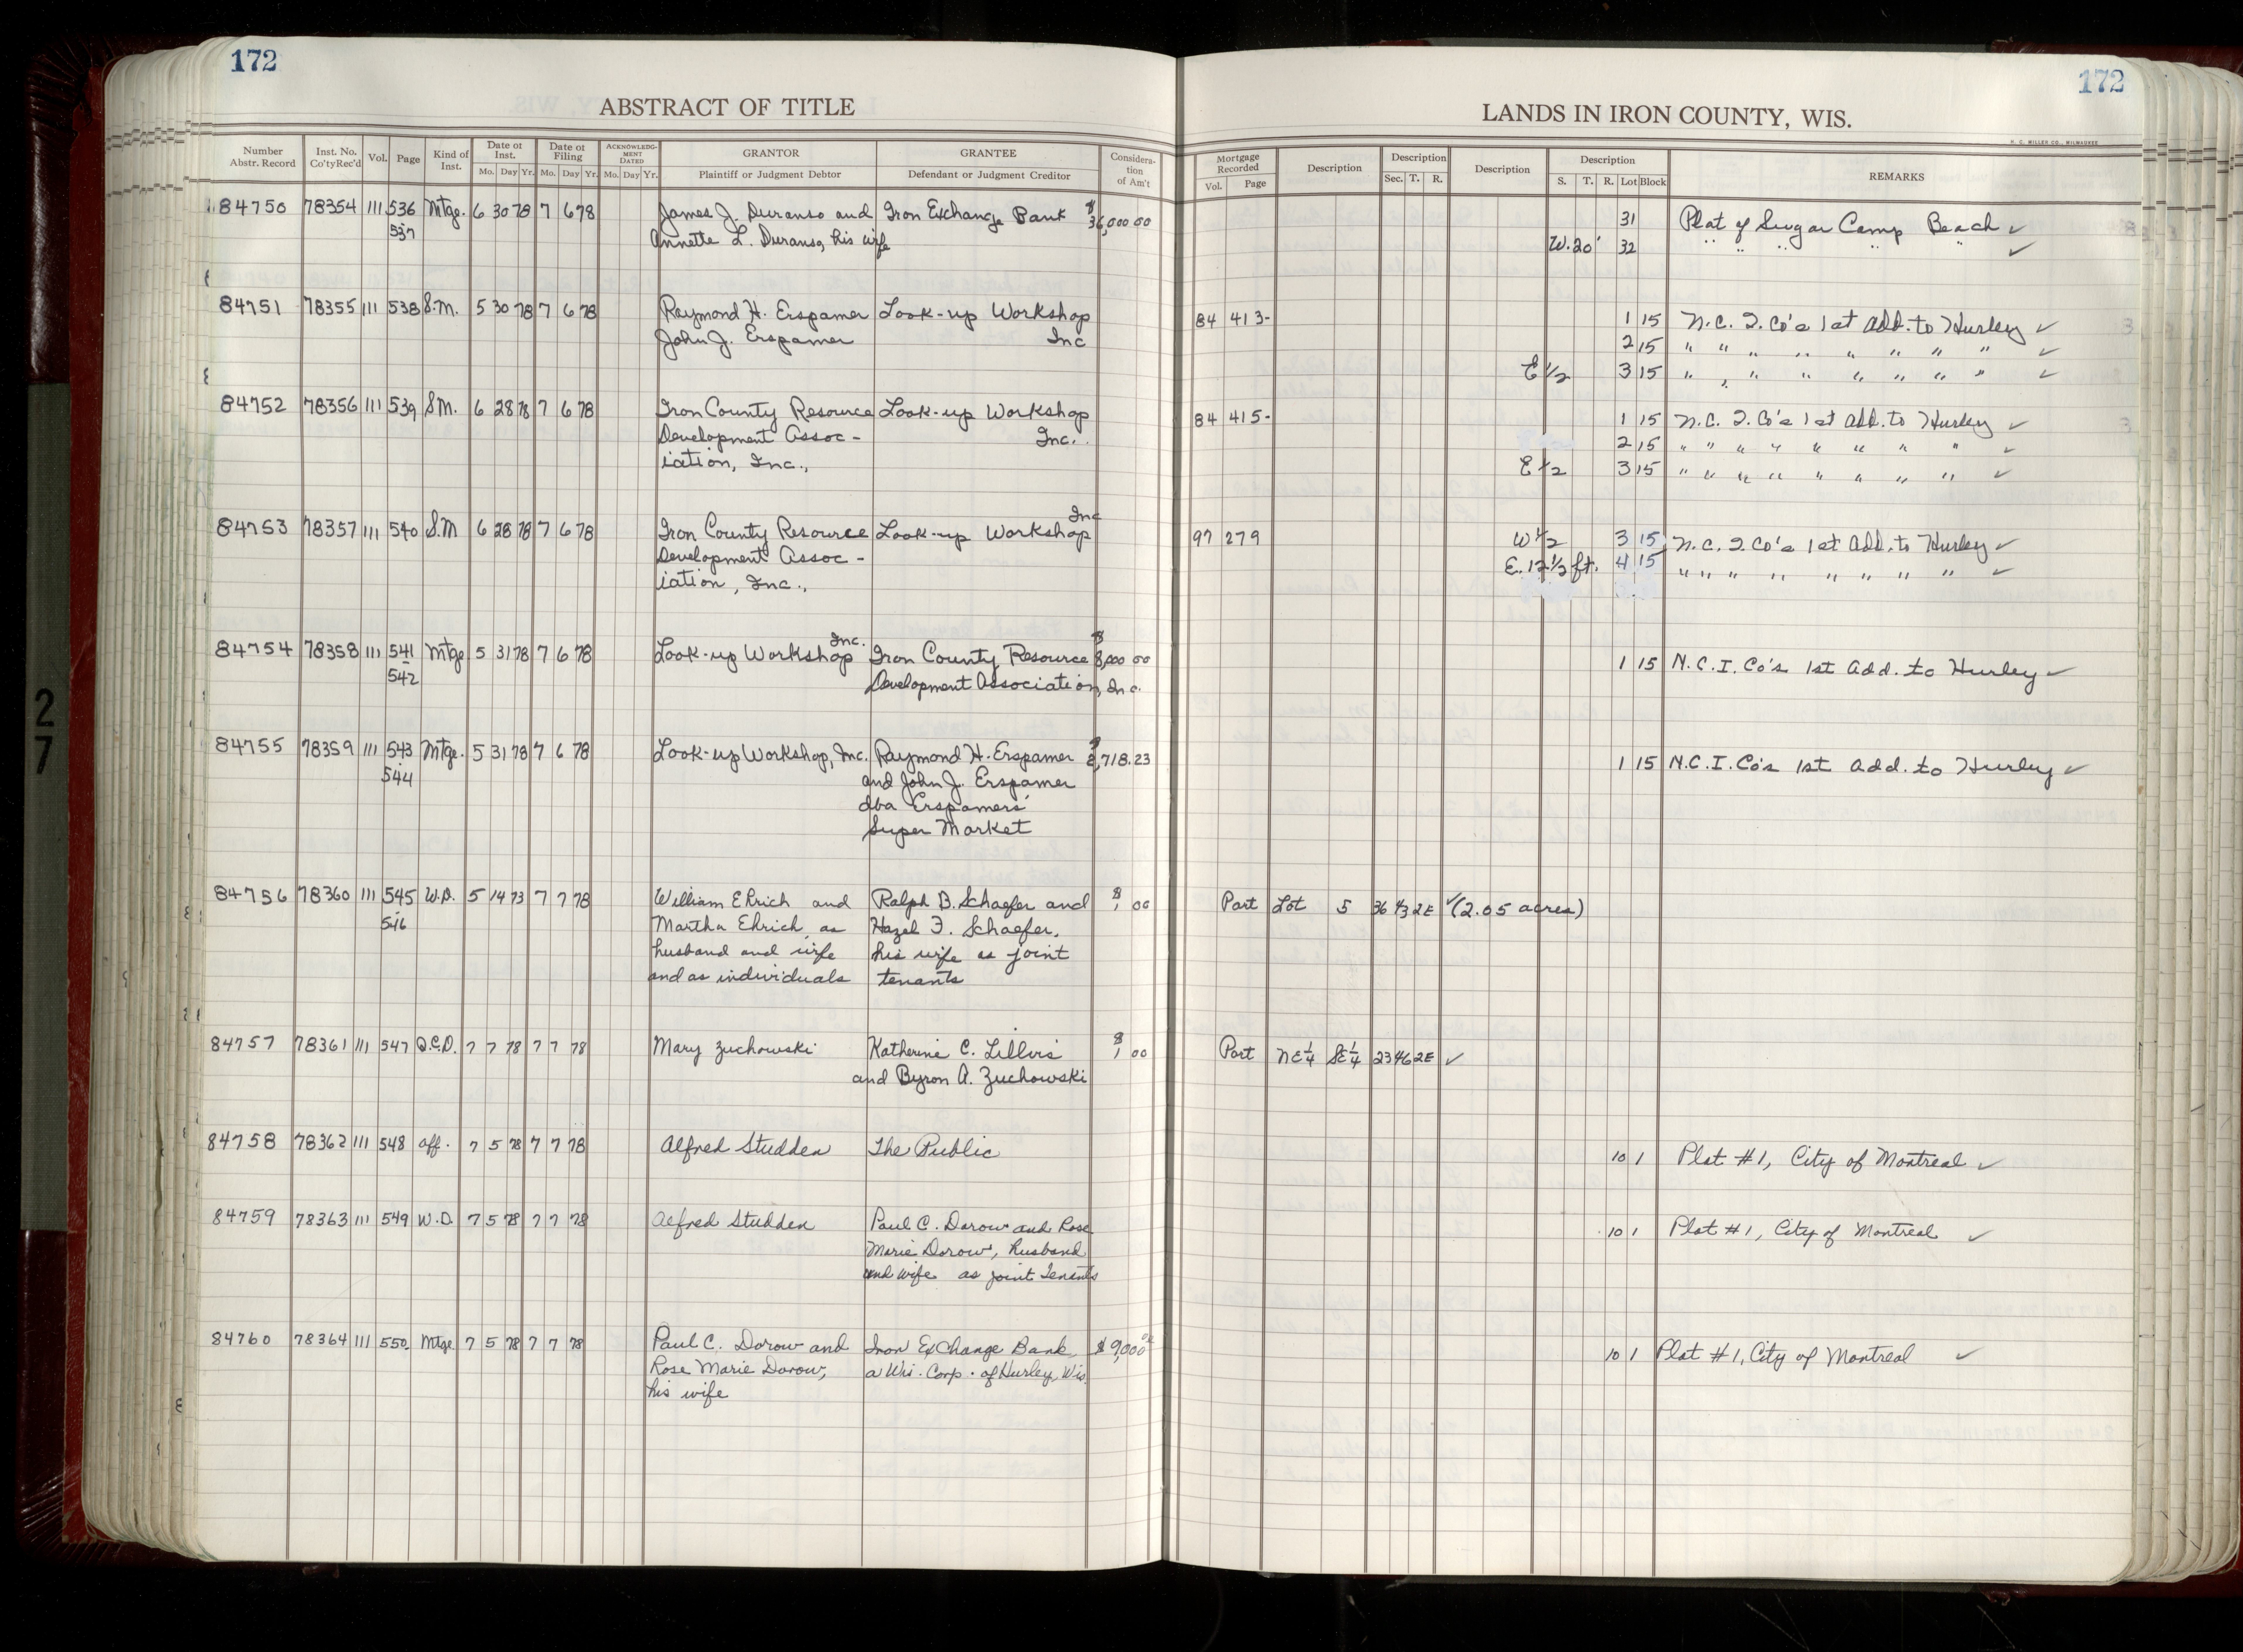 172
172
ABSTRACT OF TITLE
LANDS IN IRON COUNTY, WIS.
H. C. MILLER CO., MILWAUKEE
Number Abstr. Record Inst. No. Co'tyRec'd Vol. Page Kind of Inst. Date of Inst. Mo. Day Yr. Date of Filing Mo. Day Yr. ACKNOWLEDG-MENT DATED Mo. Day Yr. GRANTOR Plaintiff or Judgment Debtor GRANTEE Defendant or Judgment Creditor Considera-tion of Am't Mortgage Recorded Vol. Page Description Description Sec. T. R. Description Description S. T. R. Lot Block REMARKS
84750 78354 111 536 Mtge. 6 30 78 7 6 78 James J. Duranso and Iron Exchange Bank $36,000 00 31 Plat of Sugar Camp Beach ✓
537 Annette L. Duranso, his wife W. 20' 32 " " " " " ✓
84751 78355 111 538 S.M. 5 30 78 7 6 78 Raymond H. Erspamer Look-up Workshop 84 413- 1 15 N.C.I. Co's 1st Add. to Hurley ✓
John J. Erspamer Inc 2 15 " " " " " " " " ✓
E 1/2 3 15 " " " " " " " " ✓
84752 78356 111 539 S.M. 6 28 78 7 6 78 Iron County Resource Look-up Workshop 84 415- 1 15 N.C.I. Co's 1st Add. to Hurley ✓
Development Assoc- Inc. 2 15 " " " " " " " " ✓
iation, Inc., E 1/2 3 15 " " " " " " " " ✓
Inc
84753 78357 111 540 S.M 6 28 78 7 6 78 Iron County Resource Look-up Workshop 97 279 W 1/2 3 15 N.C.I. Co's 1st Add. to Hurley ✓
Development Assoc- E. 12 1/2 ft. 4 15 " " " " " " " " ✓
iation, Inc.,
Inc.
84754 78358 111 541 Mtge 5 31 78 7 6 78 Look-up Workshop Iron County Resource $8,000 00 1 15 N.C.I. Co's 1st Add. to Hurley ✓
542 Development Association, Inc.
84755 78359 111 543 Mtge. 5 31 78 7 6 78 Look-up Workshop, Inc. Raymond H. Erspamer ,718.23 1 15 N.C.I. Co's 1st Add. to Hurley ✓
544 and John J. Erspamer
dba Erspamers'
Super Market
84756 78360 111 545 W.D. 5 14 73 7 7 78 William Ehrich and Ralph B. Schaefer and $1, 00 Part Lot 5 36 43 2E ✓ (2.05 acres)
546 Martha Ehrich, as Hazel F. Schaefer,
husband and wife his wife as joint
and as individuals tenants
84757 78361 111 547 Q.C.D. 7 7 78 7 7 78 Mary Zuchowski Katherine C. Lillvis $1 00 Part NE 1/4 SE 1/4 23 46 2E ✓
and Byron A. Zuchowski
84758 78362 111 548 Aff. 7 5 78 7 7 78 Alfred Studden The Public 10 1 Plat #1, City of Montreal ✓
84759 78363 111 549 W.D. 7 5 78 7 7 78 Alfred Studden Paul C. Dorow and Rose 10 1 Plat #1, City of Montreal ✓
Marie Dorow, husband
and wife as joint tenants
84760 78364 111 550 Mtge 7 5 78 7 7 78 Paul C. Dorow and Iron Exchange Bank, $9,000 10 1 Plat #1, City of Montreal ✓
Rose Marie Dorow, a Wis. Corp. of Hurley, Wis.
his wife
27